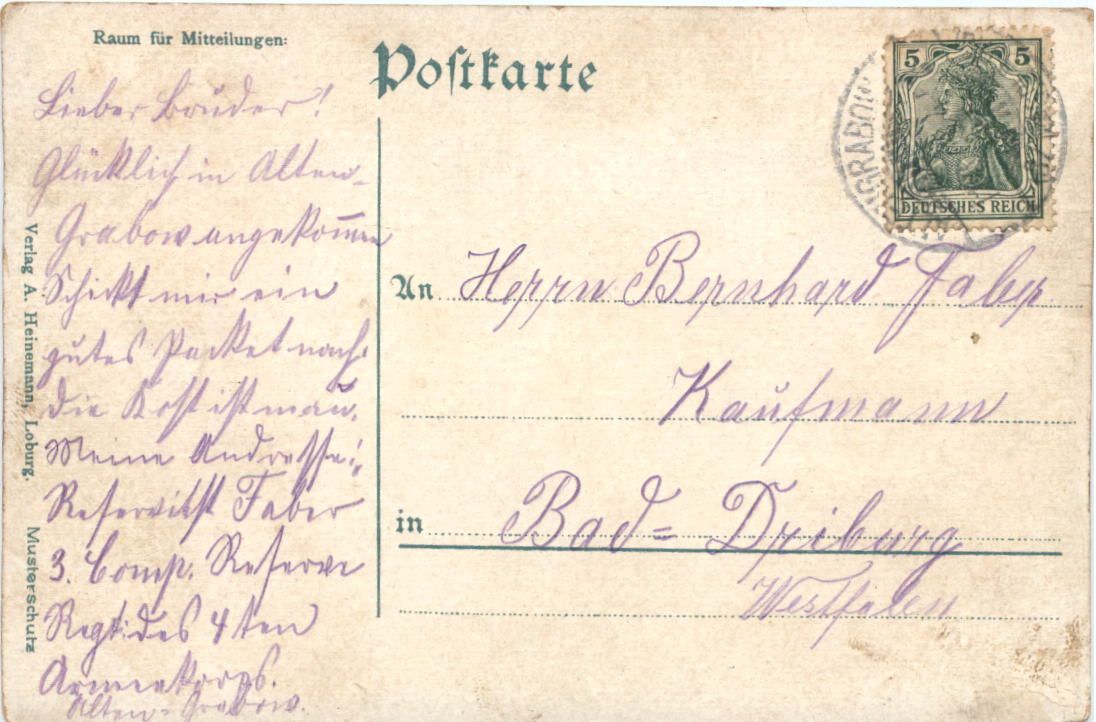 Raum für Mitteilungen:
Postkarte
Lieber Bruder!
Glücklich in Alten-
Grabow angekommen
Schickt mir ein
gutes Packet nach.
die Kost ist mau.
Meine Andresse:
Reservist Faber
3. Comp. Reserve
Regt: des 4ten
Armeekorps.
Alten-Grabow.
An Herrn Bernhard Faber
Kaufmann
in Bad=Driburg
Westfalen
5 5
DEUTSCHES REICH
GRABOW
Verlag A. Heinemann, Loburg. Musterschutz